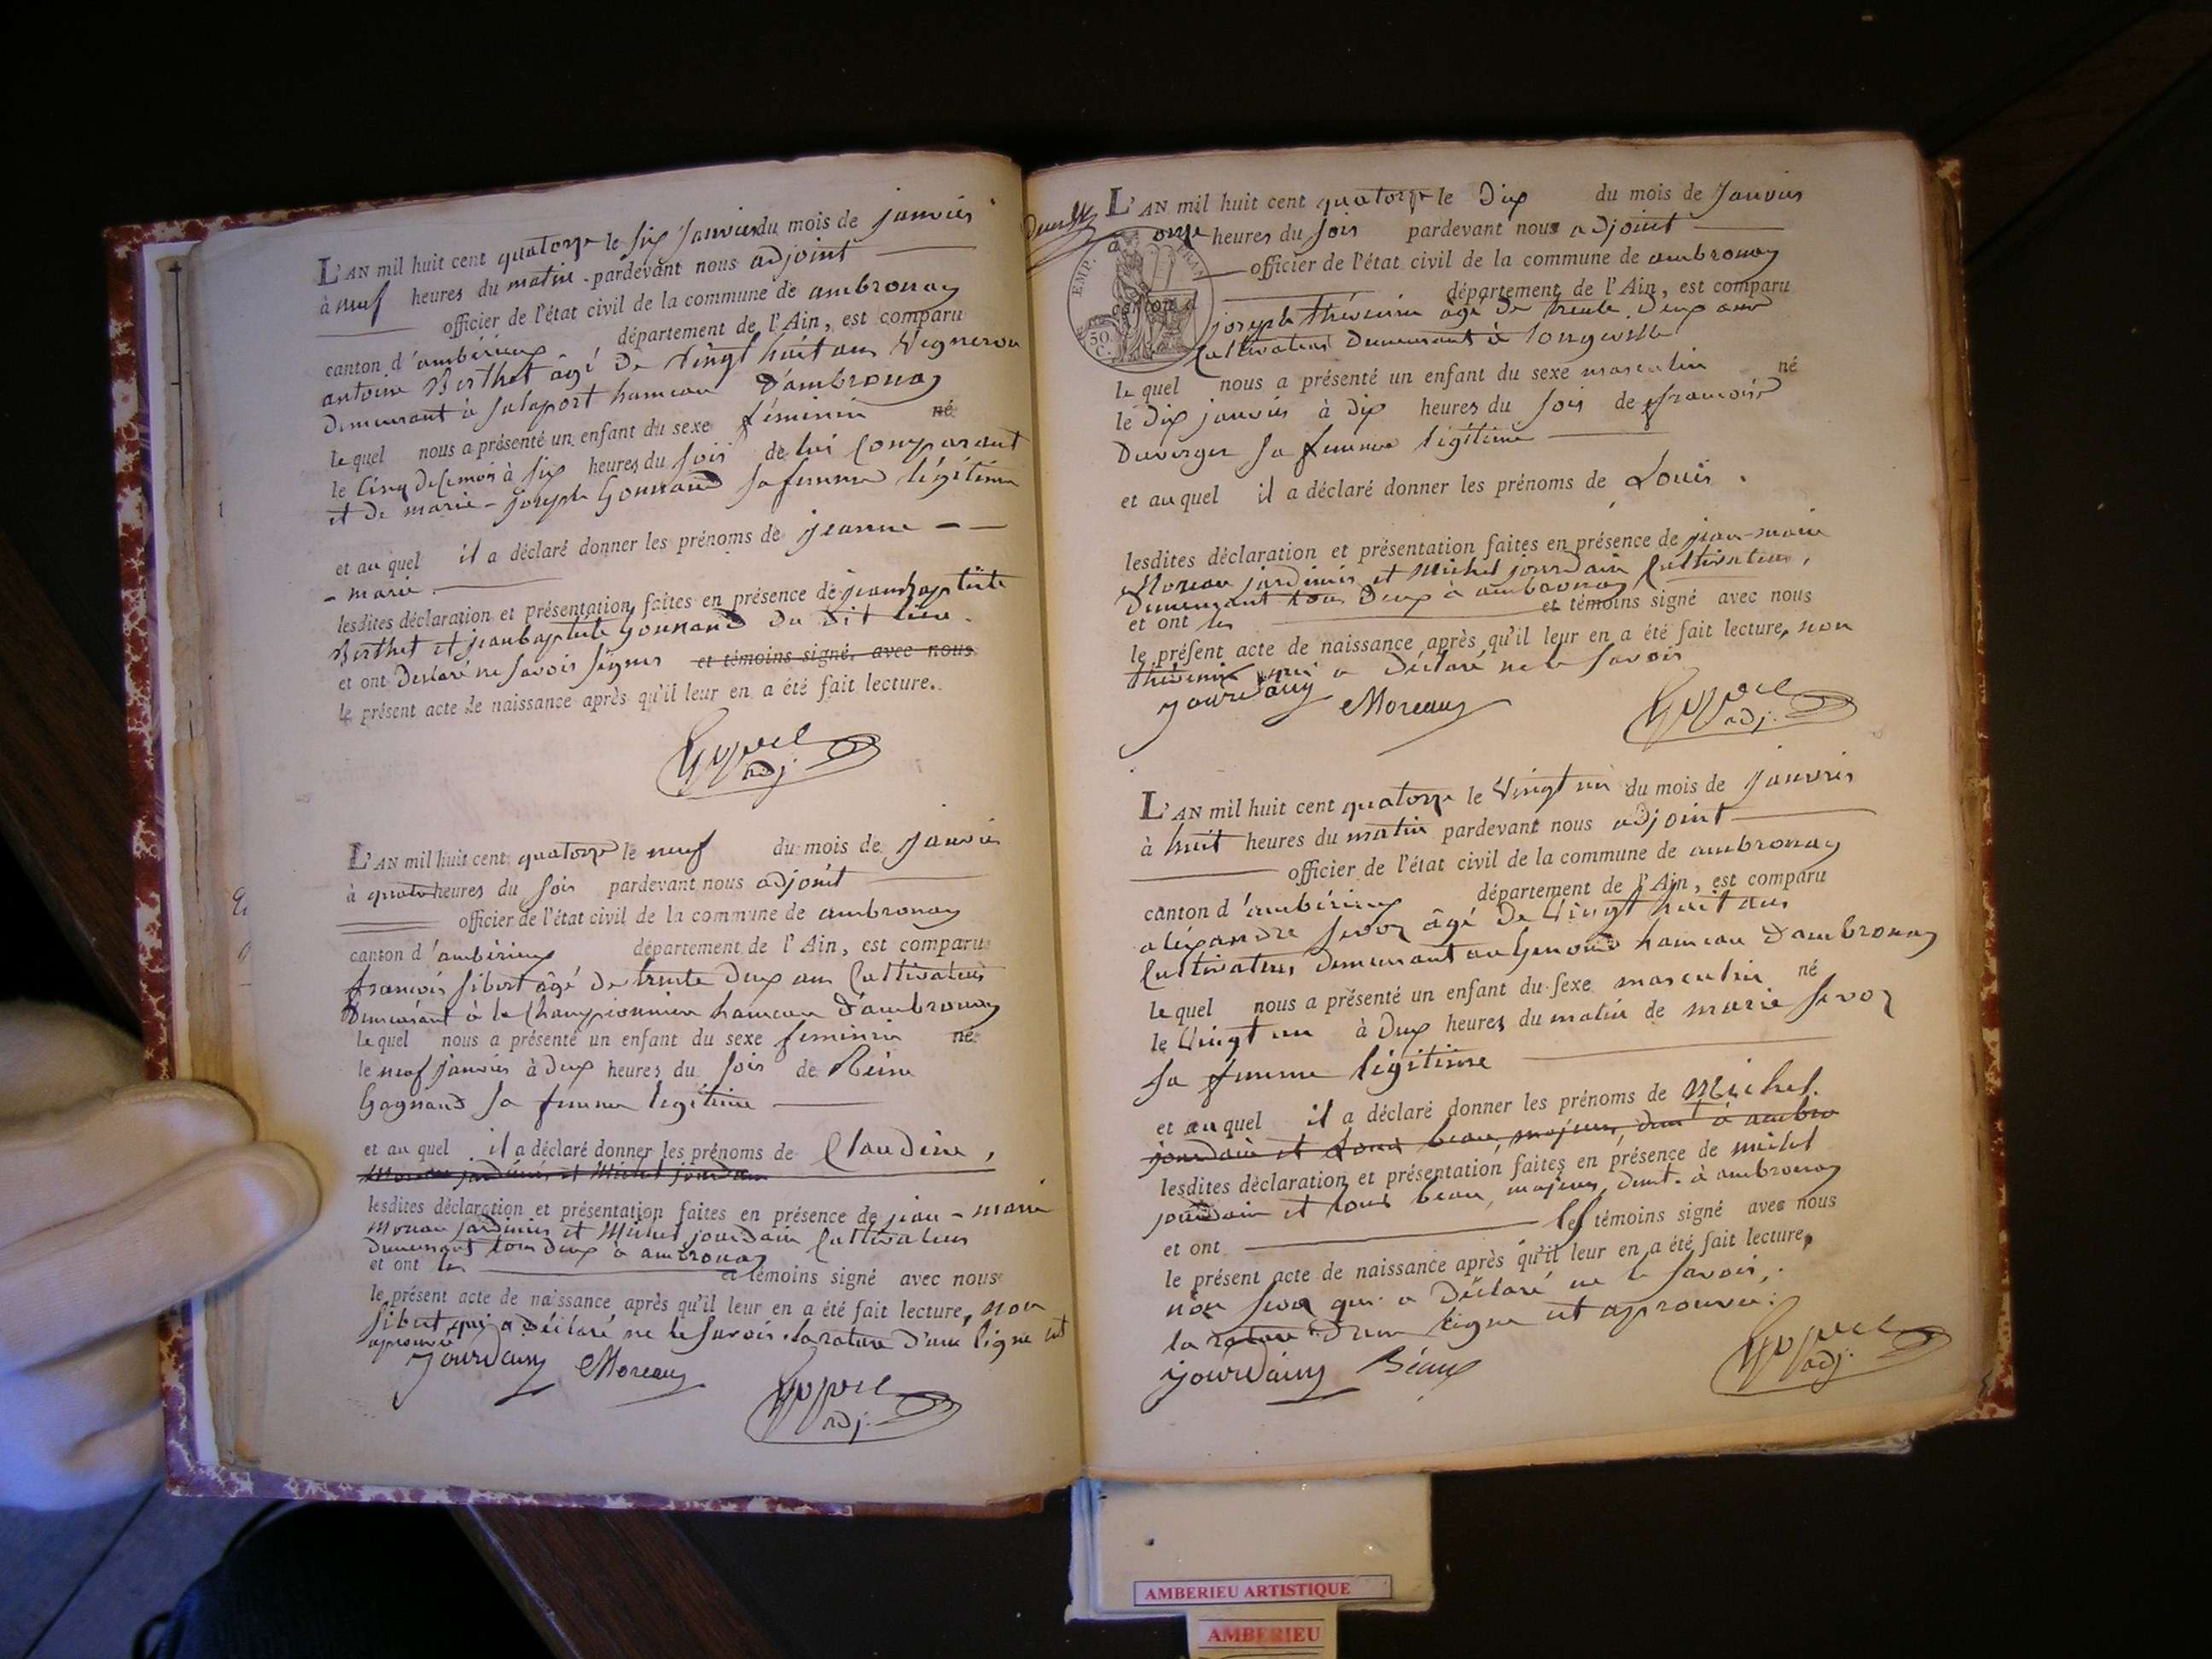 L'AN mil huit cent quatorze le six Janvier du mois de janvier
à neuf heures du matin pardevant nous adjoint
officier de l'état civil de la commune de ambronay
canton d'ambérieux département de l'Ain, est comparu
antoine Berthet âgé de vingt huit ans Vigneron
demeurant à Salaport hameau d'ambronay
le quel nous a présenté un enfant du sexe féminin né
le cinq de ce mois à six heures du soir de lui comparant
et de marie-joseph Gonnand sa femme légitime
et au quel il a déclaré donner les prénoms de jeanne -
- marie
lesdites déclaration et présentation faites en présence de jeanbaptiste
Berthet et jeanbaptiste Gonnand du dit lieu.
et ont déclaré ne savoir signer et témoins signé avec nous
le présent acte de naissance après qu'il leur en a été fait lecture.
adj.
L'AN mil huit cent quatorze le neuf du mois de Janvier
à quatre heures du soir pardevant nous adjoint
officier de l'état civil de la commune de ambronay
canton d'ambérieux département de l'Ain, est comparu
françois sibert âgé de trente deux ans cultivateur
demeurant à la Championnière hameau d'ambronay
le quel nous a présenté un enfant du sexe feminin né
le neuf janvier à deux heures du soir de Reine
Gagnand sa femme legitime
et au quel il a déclaré donner les prénoms de Claudine,
Moreau jardinier et Michel jourdain
lesdites déclaration et présentation faites en présence de jean-marie
Moreau jardinier et Michel jourdain cultivateur
demeurant tous deux à ambronay
et ont les et témoins signé avec nous
le présent acte de naissance après qu'il leur en a été fait lecture, non
sibert qui a déclaré ne le savoir. la rature d'une ligne est
aprouvée
Jourdain Moreau
adj.
L'AN mil huit cent quatorze le Dix du mois de Janvier
à onze heures du soir pardevant nous adjoint
officier de l'état civil de la commune de ambronay
canton d département de l'Ain, est comparu
joseph thévenin âgé de trente deux ans
Cultivateur demeurant à longeville
le quel nous a présenté un enfant du sexe masculin né
le dix janvier à dix heures du soir de françoise
Duverger sa femme légitime
et au quel il a déclaré donner les prénoms de Louis.
lesdites déclaration et présentation faites en présence de jean-marie
Moreau jardinier et Michel jourdain Cultivateur,
demeurant tous deux à ambronay
et ont les et témoins signé avec nous
le présent acte de naissance après qu'il leur en a été fait lecture, non
thévenin qui a déclaré ne le savoir
Jourdain Moreau
adj.
EMP. FRAN
50 C.
L'AN mil huit cent quatorze le Vingt un du mois de Janvier
à huit heures du matin pardevant nous adjoint
officier de l'état civil de la commune de ambronay
canton d'ambérieux département de l'Ain, est comparu
alexandre sevoz âgé de Vingt huit ans
Cultivateur demeurant au Genoud hameau d'ambronay
le quel nous a présenté un enfant du sexe masculin né
le Vingt un à deux heures du matin de marie sevoz
sa femme légitime
et au quel il a déclaré donner les prénoms de Michel.
jourdain et Louis beau, majeurs, dmt à ambro
lesdites déclaration et présentation faites en présence de michel
jourdain et Louis beau, majeurs, dmt. à ambronay
et ont les témoins signé avec nous
le présent acte de naissance après qu'il leur en a été fait lecture,
non sevoz qui a déclaré ne le savoir,
la rature d'une ligne est aprouvée.
jourdain Béaux
adj.
AMBERIEU ARTISTIQUE
AMBERIEU